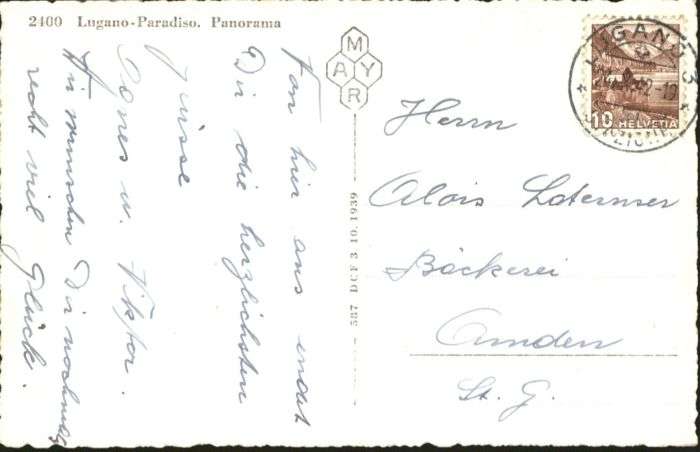 2400 Lugano-Paradiso. Panorama
MAYR
587 DCF 3. 10. 1939
Von hier aus sendet
Dir die herzlichsten
Grüsse
Agnes u. Viktor.
Wir wünschen Dir nochmals
recht viel Glück.
Herrn
Alois
Bäckerei
Amden
St. G.
LUGANO
10 HELVETIA